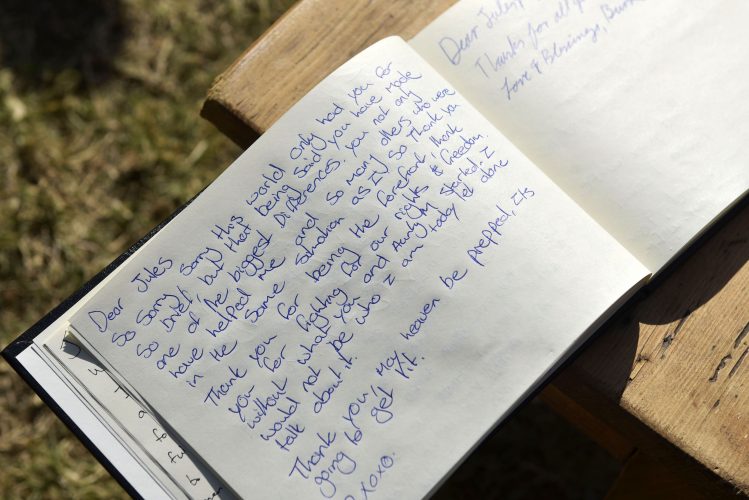 Dear Jules
So sorry this world only had you for
so brief, but that being said you have made
one of the biggest Differences. you not only
have helped me and so many others who were
in the same situation as I, so thank you
Thank you for being the forefront, thank
you for fighting for our rights & freedom.
without what you and Aunty M started. I
would not be who I am today let alone
talk about it.
Thank you, May heaven be prepped, its
going to get lit.
xoxo.
Dear Jules,
Thanks for all
Love & Blessings,